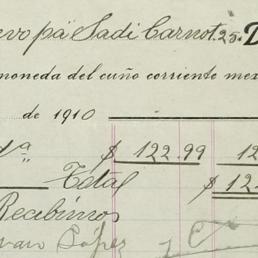 evo pä Sadi Carnot. 25. D
moneda del cuño corriente mex
de 1910
a $ 122.99 12
Total $ 12
Recibimos
van López